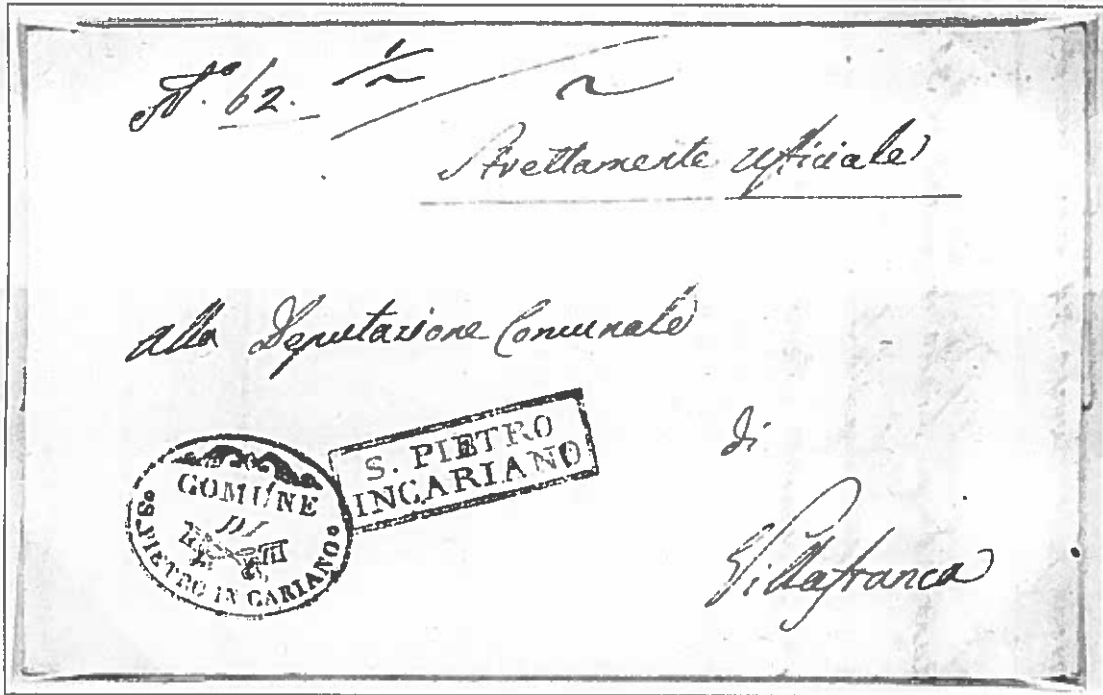 N.° 62.
Strettamente Ufficiale
alla Deputazione Comunale
di
Villafranca
S. PIETRO
INCARIANO
COMUNE
DI
S. PIETRO IN CARIANO